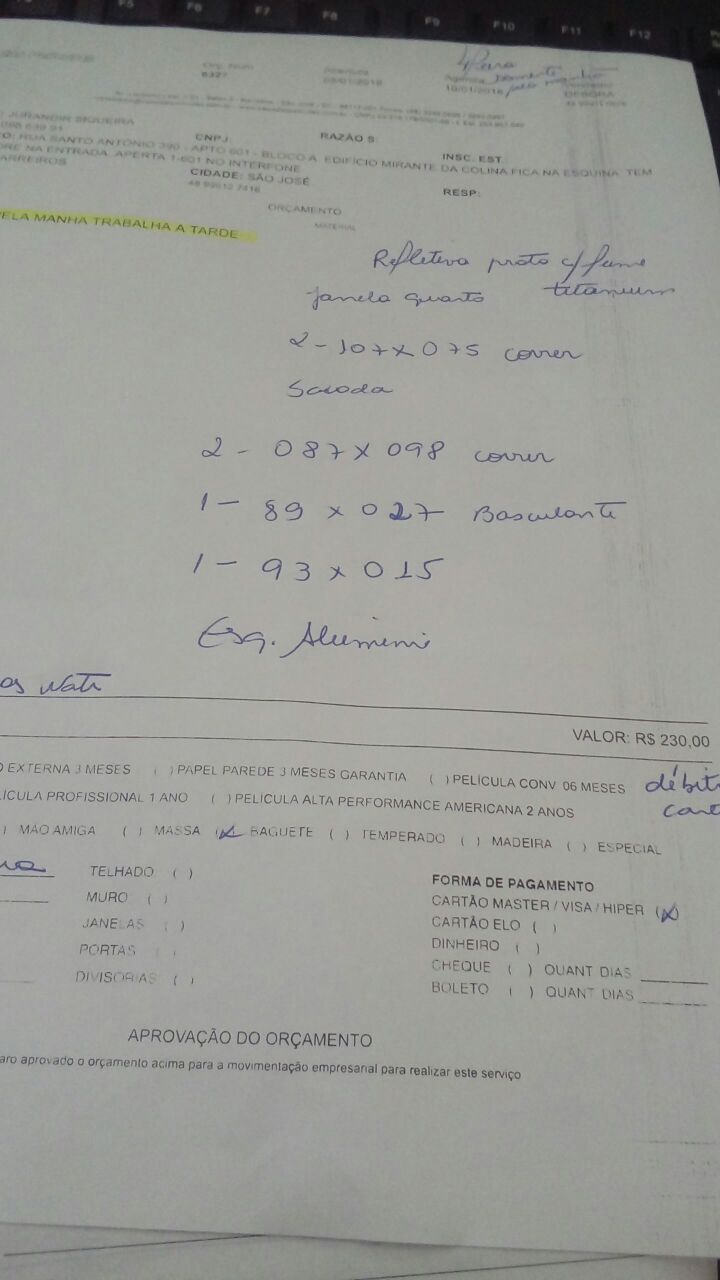 F5 F6 F7 F8 F9 F10 F11 F12
Para
somente
pela manhã
6327
10/01/2018
DEBORA
: JURANDIR SIQUEIRA
CNPJ:
RAZÃO S:
INSC. EST.
TO: RUA SANTO ANTONIO 390 - APTO 601 - BLOCO A EDIFICIO MIRANTE DA COLINA FICA NA ESQUINA TEM
NA ENTRADA. APERTA 1-601 NO INTERFONE
ARREIROS
CIDADE: SÃO JOSÉ
RESP:
ORÇAMENTO
MATERIAL
ELA MANHA TRABALHA A TARDE
Refletiva prata c/ fume
titanium
Janela quarto
2 - 107 x 075 correr
Sacada
2 - 087 x 098 correr
1 - 89 x 027 Basculante
1 - 93 x 015
Esq. Alumínio
VALOR: R$ 230,00
O EXTERNA 3 MESES ( ) PAPEL PAREDE 3 MESES GARANTIA ( ) PELÍCULA CONV 06 MESES
débit
LÍCULA PROFISSIONAL 1 ANO ( ) PELÍCULA ALTA PERFORMANCE AMERICANA 2 ANOS
) MÃO AMIGA ( ) MASSA (X BAGUETE ( ) TEMPERADO ( ) MADEIRA ( ) ESPECIAL
TELHADO ( )
MURO ( )
JANELAS ( )
PORTAS ( )
DIVISORIAS ( )
FORMA DE PAGAMENTO
CARTÃO MASTER / VISA / HIPER (X)
CARTÃO ELO ( )
DINHEIRO ( )
CHEQUE ( ) QUANT DIAS ________
BOLETO ( ) QUANT DIAS ________
APROVAÇÃO DO ORÇAMENTO
aro aprovado o orçamento acima para a movimentação empresarial para realizar este serviço